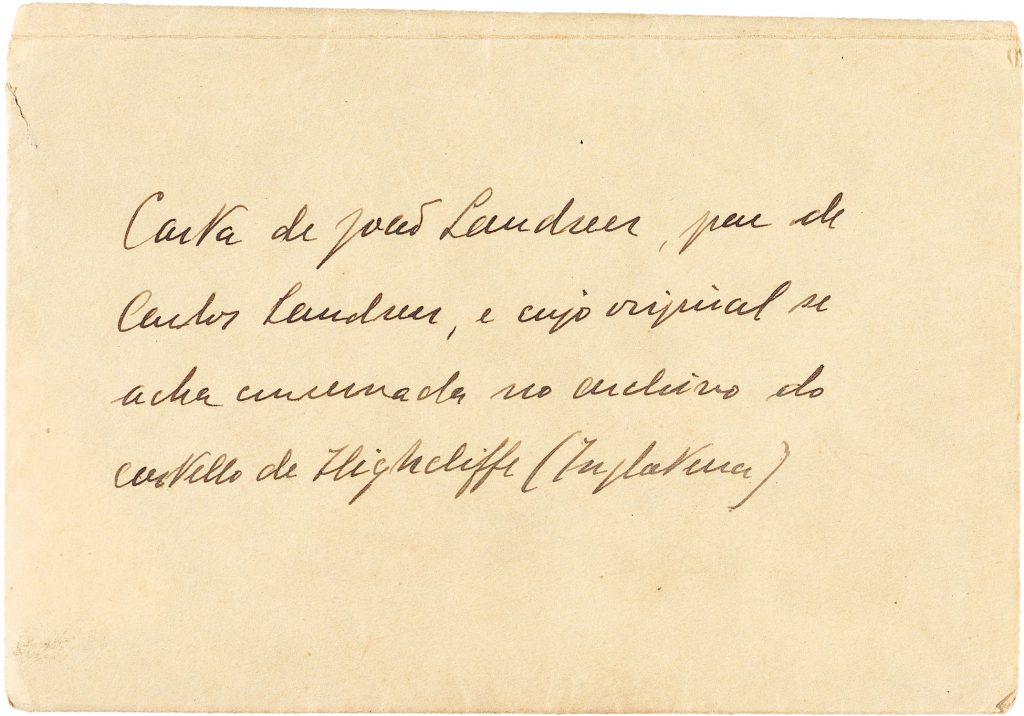 Carta de João Landseer, pae de
Carlos Landseer, e cujo original se
acha conservada no archivo do
castello de Highcliffe (Inglaterra)